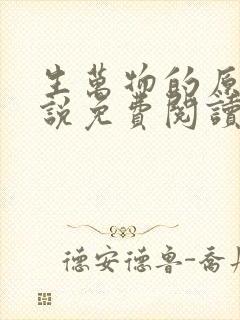 生萬物的原
說免費閱讀
德安德魯-喬